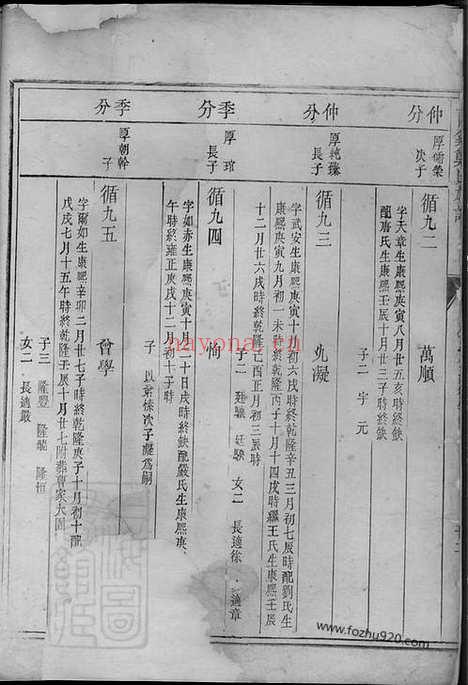 仲分
厚衛榮
次子
循九二 萬順
字天章生康熙庚寅八月廿五亥時終缺
配唐氏生康熙壬辰十月廿三子時終缺
子二 宇 元
仲分
厚純璣
長子
循九三 允凝
字武安生康熙庚寅十月初六戌時終乾隆辛丑三月初七辰時配劉氏生
康熙庚寅九月初一未時終乾隆丙子十月十四戌時繼王氏生康熙庚辰
十二月廿六戌時終乾隆己酉正月初三辰時
子二 廷驤 廷騄 女二 長適徐 適章
季分
厚琯
長子
循九四 恂
字如赤生康熙庚寅十月二十日戌時終缺配嚴氏生康熙庚
午時終雍正庚戌十二月初十子時
子 以弟條次子凝爲嗣
季分
厚朝幹
子
循九五 曾學
字爾如生康熙辛卯二月廿七子時終乾隆庚子十月初十配
戊戌七月十五午時終乾隆壬辰十月廿七附葬賣家大園
子三 隆豐 隆騄 隆恒
女二 長適嚴
nayona.cn
www.fozhu920.com